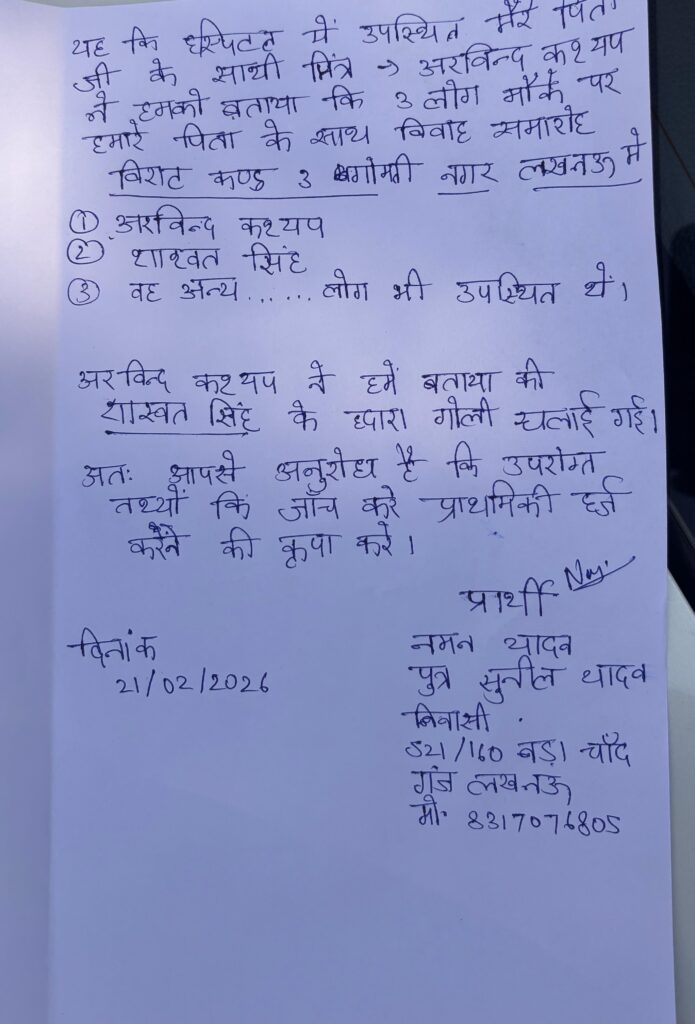 यह कि हस्पिटल में उपस्थित मेरे पिता
जी के साथी मित्र → अरविन्द कश्यप
ने हमको बताया कि 3 लोग मौके पर
हमारे पिता के साथ विवाह समारोह
विराट खण्ड 3 गोमती नगर लखनऊ में
① अरविन्द कश्यप
② शाश्वत सिंह
③ वह अन्य ...... लोग भी उपस्थित थें।
अरविन्द कश्यप ने हमें बताया की
शास्वत सिंह के द्वारा गोली चलाई गई।
अतः आपसे अनुरोध है कि उपरोक्त
तथ्यों कि जाँच करे प्राथमिकी दर्ज
करने की कृपा करे।
प्रार्थी
नमन यादव
दिनांक
पुत्र सुनील यादव
21/02/2026
निवासी
521/160 बड़ा चाँद
गंज लखनऊ
मो. 8317076805